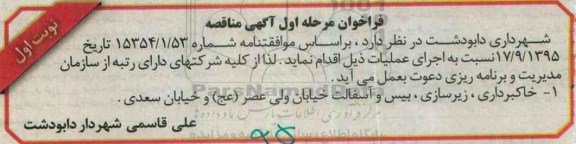 فراخوان مرحله اول آگهی مناقصه
نوبت اول
شهرداری دابودشت در نظر دارد ، براساس موافقتنامه شماره ۱۵۳۵۴/۱/۵۳ تاریخ
۱۷/۹/۱۳۹۵نسبت به اجرای عملیات ذیل اقدام نماید . لذا از کلیه شرکتهای دارای رتبه از سازمان
مدیریت و برنامه ریزی دعوت بعمل می آید .
۱- خاکبرداری ، زیرسازی ، بیس و آسفالت خیابان ولی عصر (عج) و خیابان سعدی .
علی قاسمی شهردار دابودشت